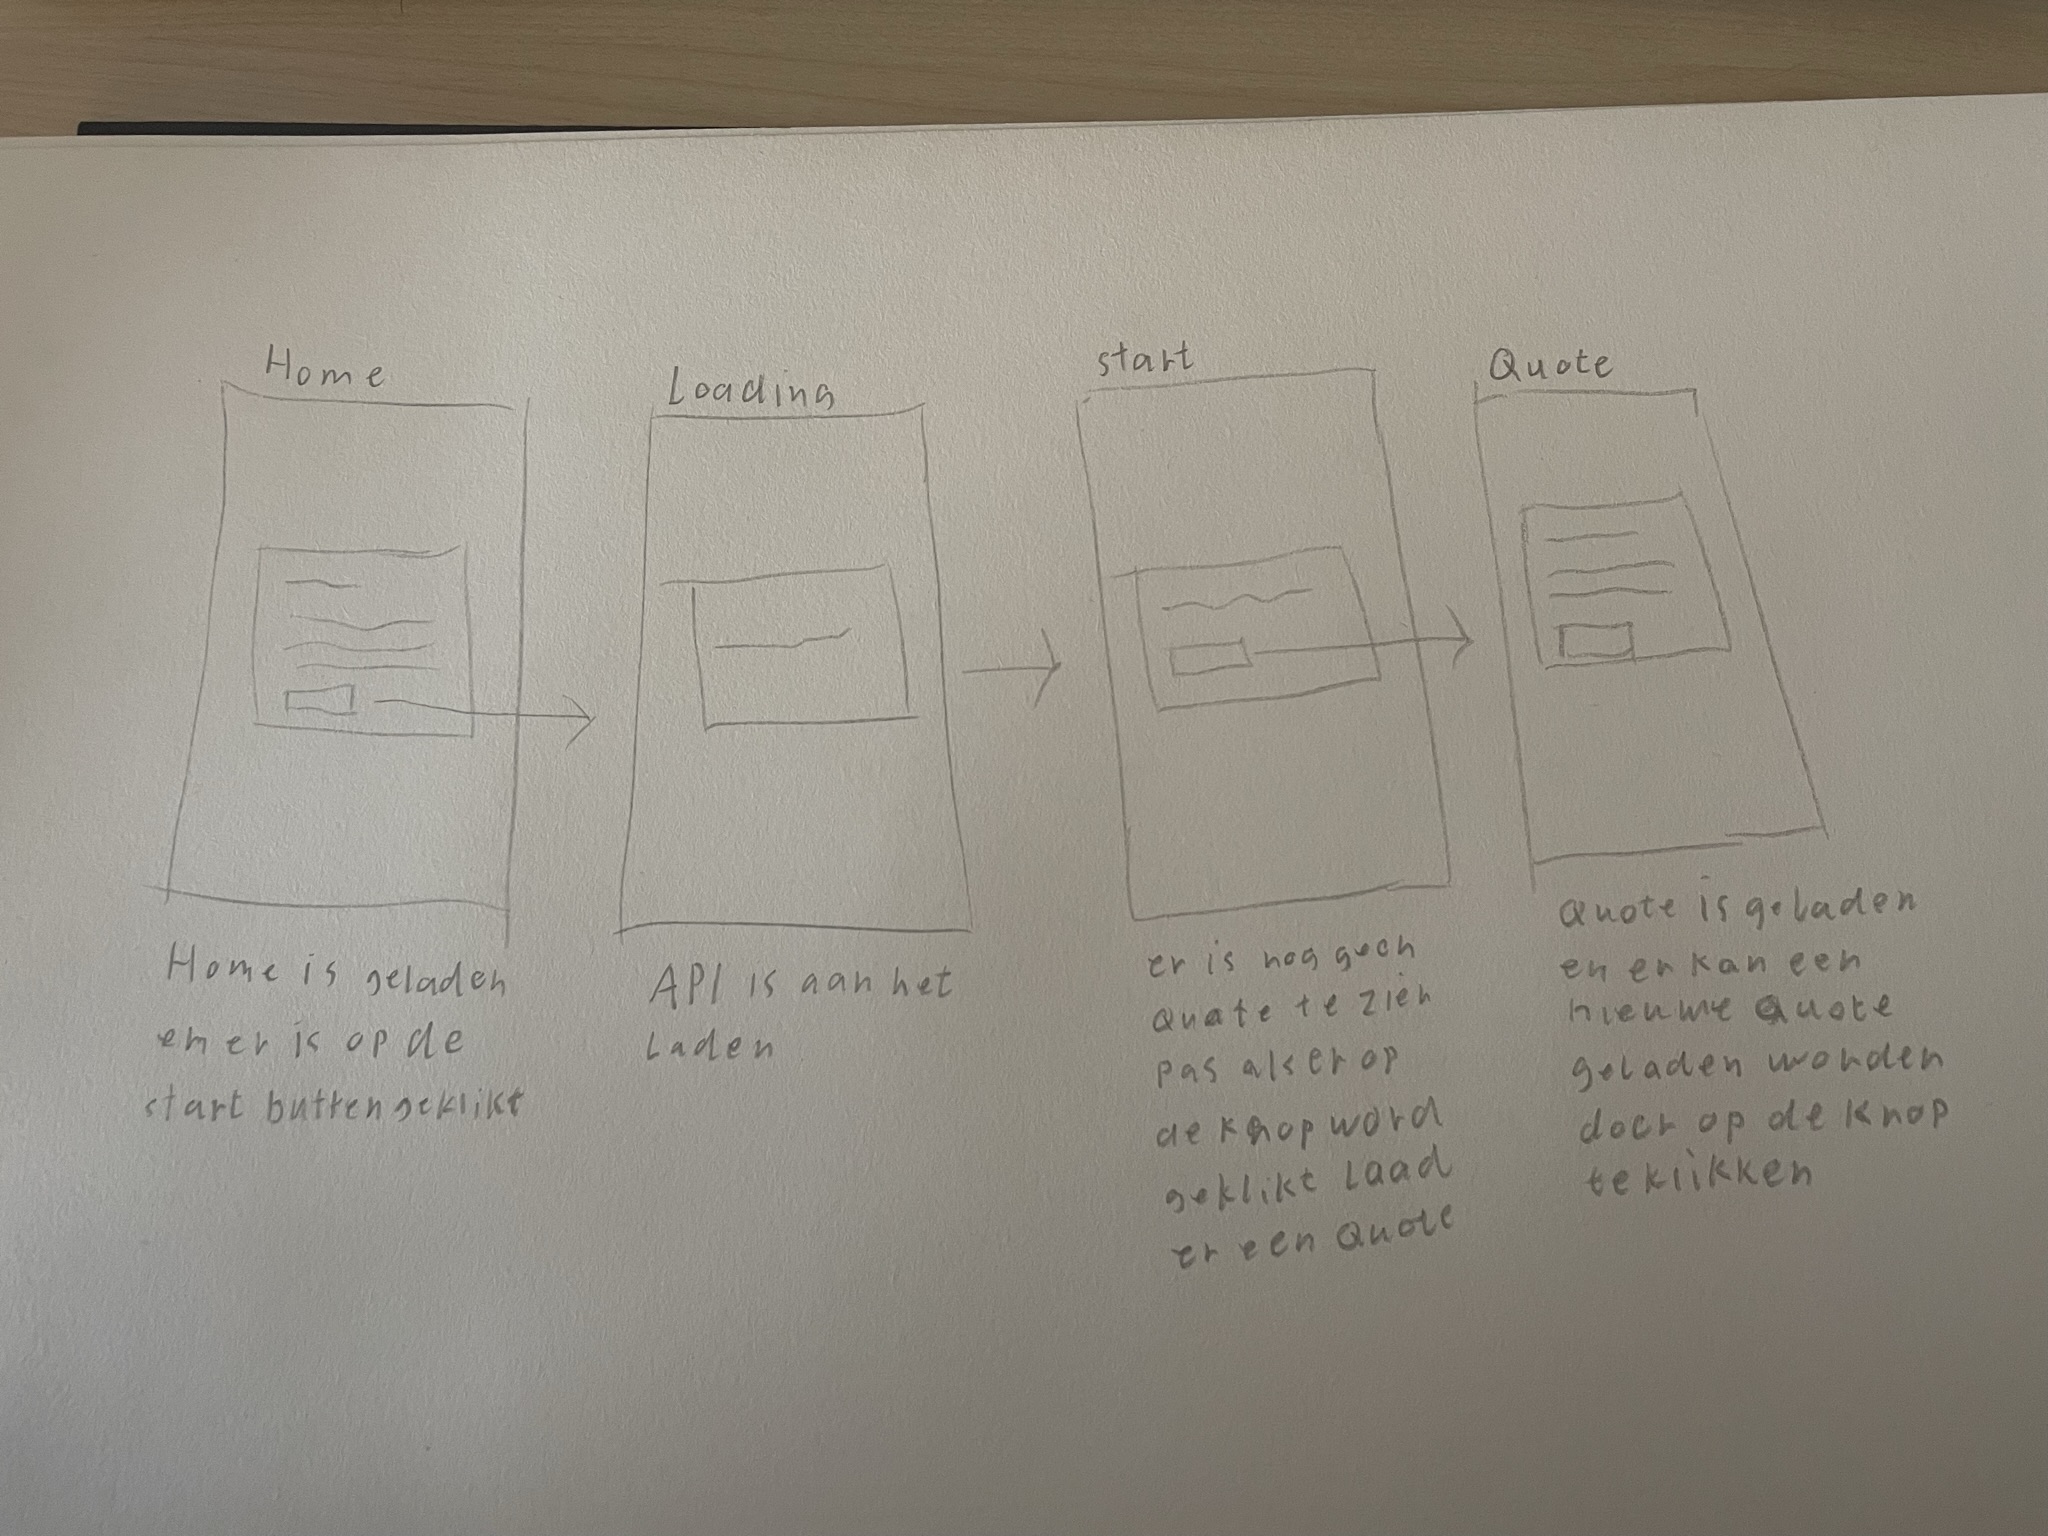 Home
Home is geladen
en er is op de
start button geklikt
Loading
API is aan het
laden
start
er is nog geen
Quote te zien
pas als er op
de knop word
geklikt laad
er een Quote
Quote
Quote is geladen
en er kan een
nieuwe Quote
geladen worden
door op de knop
te klikken